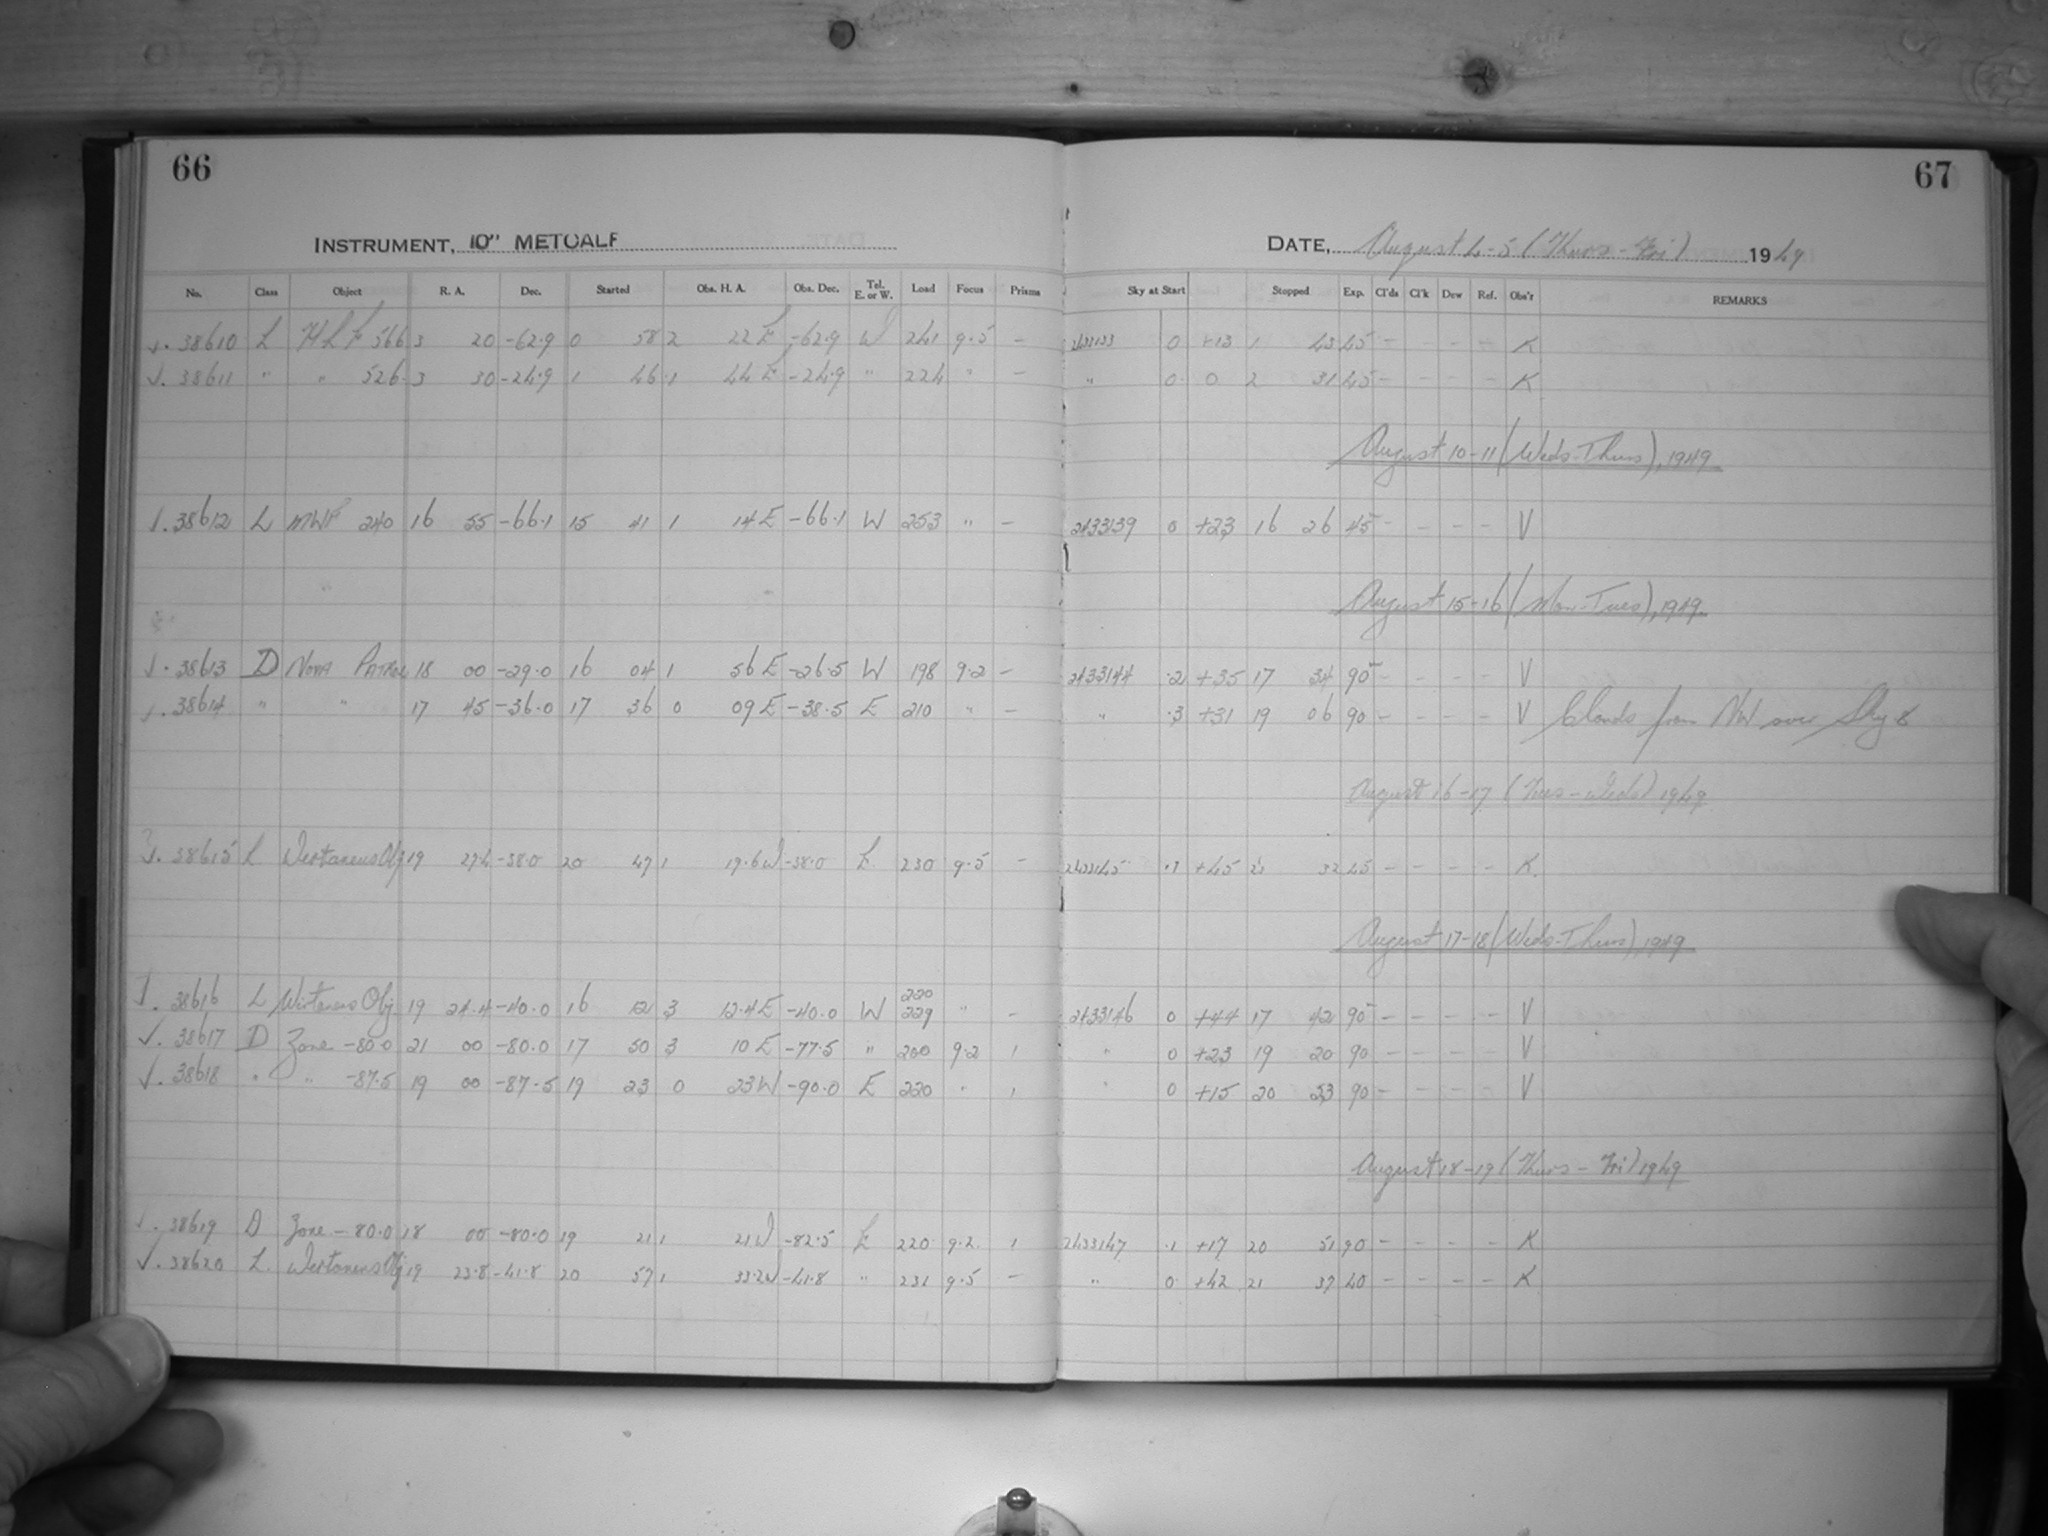 66
67
INSTRUMENT, 10" METCALF
DATE, August 4-5 (Thurs - Fri) 1949
No. Class Object R. A. Dec. Started Obs. H. A. Obs. Dec. Tel. E. or W. Load Focus Prisms Sky at Start Stopped Exp. Cl'ds Cl'k Dew Ref. Obs'r REMARKS
√. 38610 L HLF 566 3 20 -62.9 0 58 2 22 E -62.9 W 241 9.5 - 2433133 0 +13 1 43 45 - - - - K
√. 38611 " " 526 3 30 -24.9 1 46 1 44 E -24.9 " 224 " - " 0 0 2 31 45 - - - - K
August 10-11 (Weds-Thurs), 1949
√. 38612 L MWF 240 16 55 -66.1 15 41 1 14 E -66.1 W 253 " - 2433139 0 +23 16 26 45 - - - - V
August 15-16 (Mon-Tues), 1949
√. 38613 D NOVA PATROL 18 00 -29.0 16 04 1 56 E -26.5 W 198 9.2 - 2433144 .2 +35 17 34 90 - - - - V
√. 38614 " " 17 45 -36.0 17 36 0 09 E -38.5 E 210 " - " .3 +31 19 06 90 - - - - V Clouds from NW over Sky 8
August 16-17 (Tues - Weds) 1949
√. 38615 L Wirtanens Obj 19 27.4 -38.0 20 47 1 19.6 W -38.0 E 230 9.5 - 2433145 .3 +45 21 32 45 - - - - K.
August 17-18 (Weds-Thurs), 1949
√. 38616 L Wirtanens Obj 19 24.4 -40.0 16 12 3 12.4 E -40.0 W 220 229 " - 2433146 0 +44 17 42 90 - - - - V
√. 38617 D Zone -80.0 21 00 -80.0 17 50 3 10 E -77.5 " 200 9.2 1 " 0 +23 19 20 90 - - - - V
√. 38618 " " -87.5 19 00 -87.5 19 23 0 23 W -90.0 E 220 " 1 " 0 +15 20 53 90 - - - - V
August 18-19 (Thurs - Fri) 1949
√. 38619 D Zone -80.0 18 00 -80.0 19 21 1 21 W -82.5 E 220 9.2 1 2433147 .1 +17 20 51 90 - - - - K
√. 38620 L. Wirtanens Obj 19 23.8 -41.8 20 57 1 33.2 W -41.8 " 231 9.5 - " 0 +42 21 37 40 - - - - K